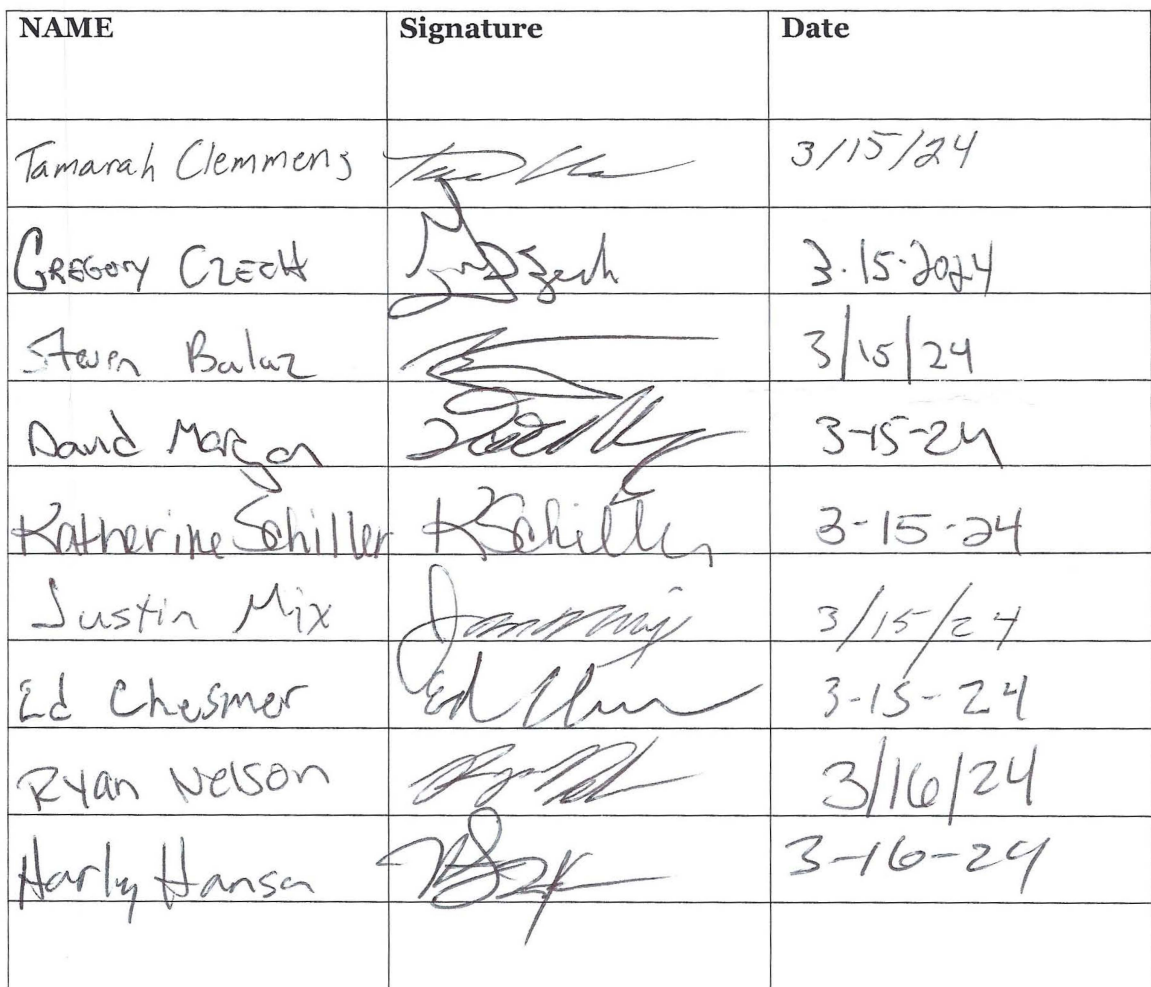 NAME Signature Date
Tamarah Clemmens 3/15/24
GREGORY CZECH 3.15.2024
Steven Balaz 3/15/24
David Morgan 3-15-24
Katherine Schiller KSchiller 3-15-24
Justin Mix 3/15/24
Ed Chesmer Ed 3-15-24
Ryan Nelson 3/16/24
Harly Hansen 3-16-24